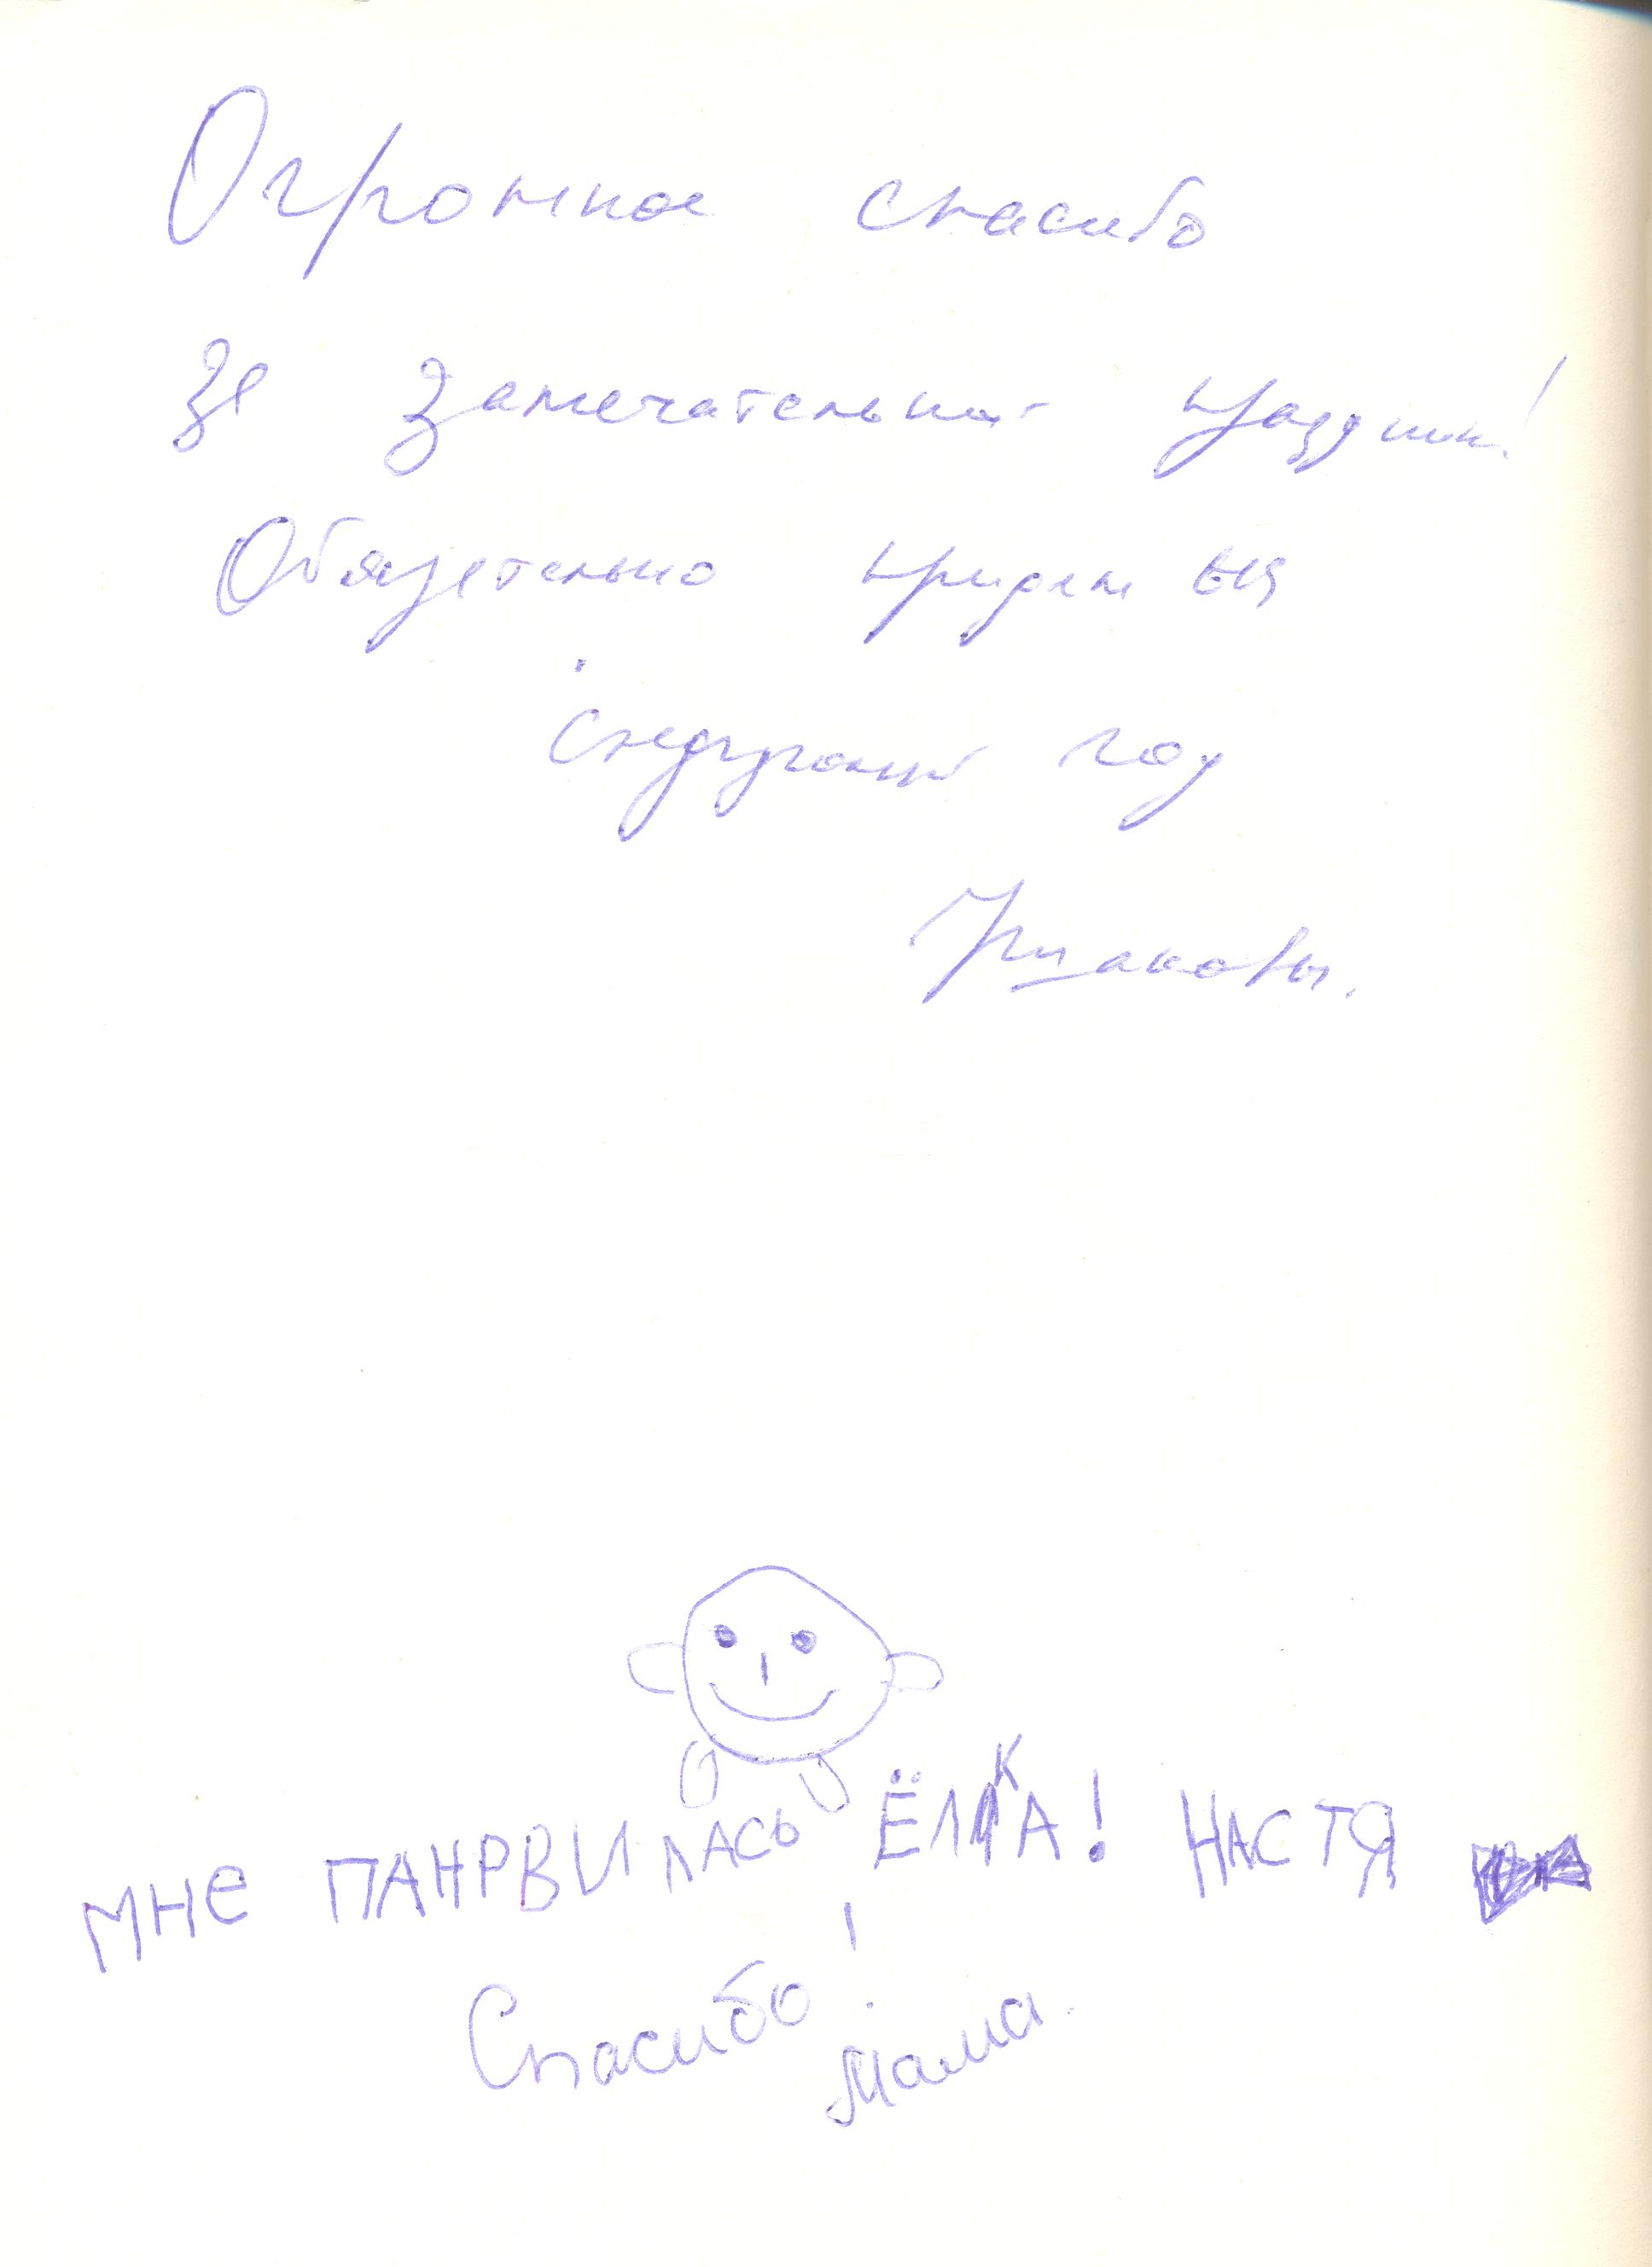 Огромное спасибо
за замечательный праздник!
Обязательно придем на
следующий год
МНЕ ПАНРВИЛАСЬ ЁЛКА! НАСТЯ
Спасибо! Мама.